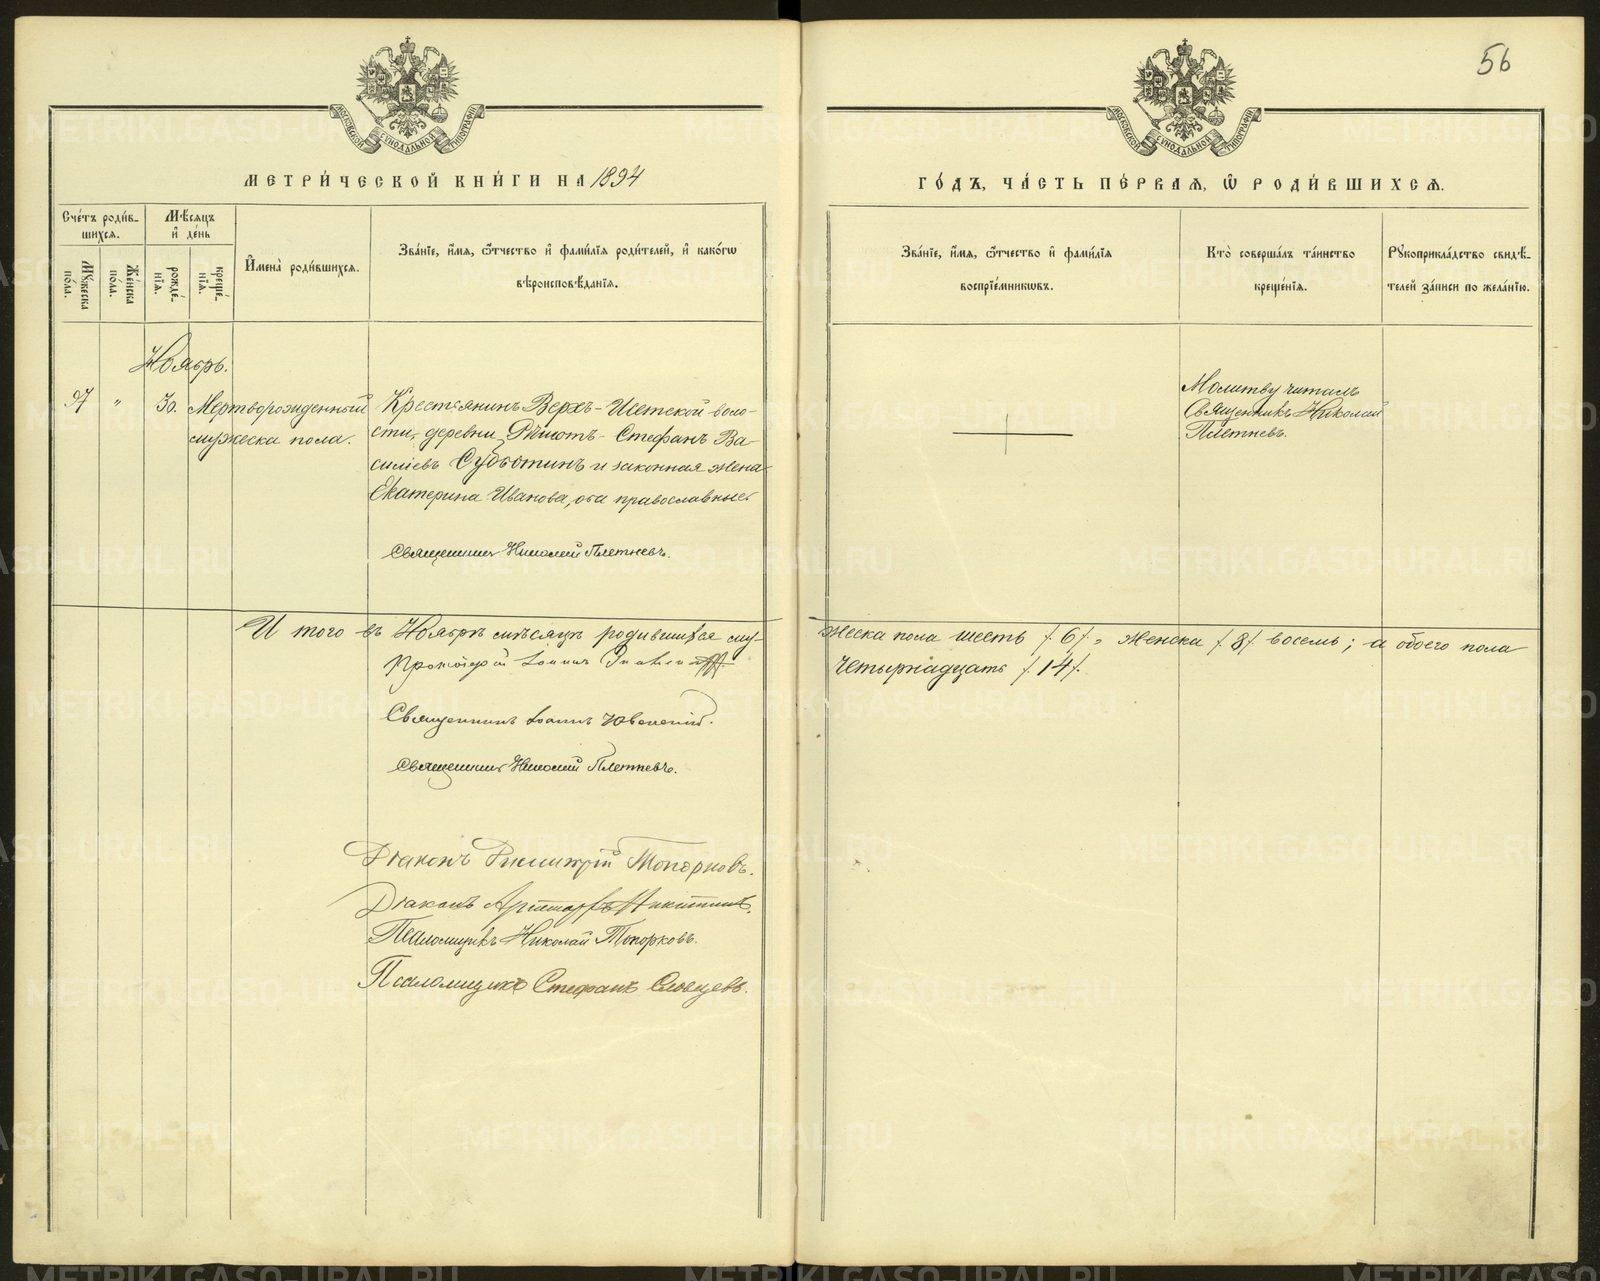 56
МОСКОВСКОЙ СѴНОДАЛЬНОЙ ТИПОГРАФІИ
МОСКОВСКОЙ СѴНОДАЛЬНОЙ ТИПОГРАФІИ
МЕТРИ́ЧЕСКОЙ КНИ́ГИ НА 1894
ГО́ДЪ, ЧА́СТЬ ПЕ́РВАЯ, Ѽ РОДИ́ВШИХСЯ.
Сче́тъ роди́в-
шихся.
Мꙋ́жеска
по́ла.
Же́нска
по́ла.
Мѣ́сяцъ
и҆ де́нь
рожде́-
нїя.
креще́-
нїя.
И҆мена̀ роди́вшихся.
Зва́нїе, и҆́мя, ѻ҆́тчество и҆ фами́лїя роди́телей, и҆ како́гѡ
вѣроисповѣ́данїя.
Зва́нїе, и҆́мя, ѻ҆́тчество и҆ фами́лїя
воспрїе́мникѡвъ.
Кто̀ соверша́лъ та́инство
креще́нїя.
Рꙋкоприкла́дство свидѣ́-
телей за́писи по жела́нїю.
Ноябрь.
97 " 30. Мертворожденный
мужеска пола.
Крестьянинъ Верхъ-Исетской воло-
сти, деревни Рѣшотъ- Стефанъ Ва-
силіевъ Субботинъ и законная жена
Екатерина Иванова, оба православные
Священникъ Николай Плетневъ.
Молитву читалъ
Священникъ Николай
Плетневъ.
И того въ Ноябрѣ мѣсяцѣ родившихся му-
жеска пола шесть /.6/. " женска /.8/. восемь; а обоего пола
четырнадцать /.14/.
Протоіерей Іоаннъ
Священникъ Іоаннъ
Священникъ Николай Плетневъ.
Діаконъ Димитрій Топорковъ.
Діаконъ Никитинъ.
Псаломщикъ Николай Топорковъ.
Псаломщикъ Стефанъ Словцевъ.
METRIKI.GASO-URAL.RU